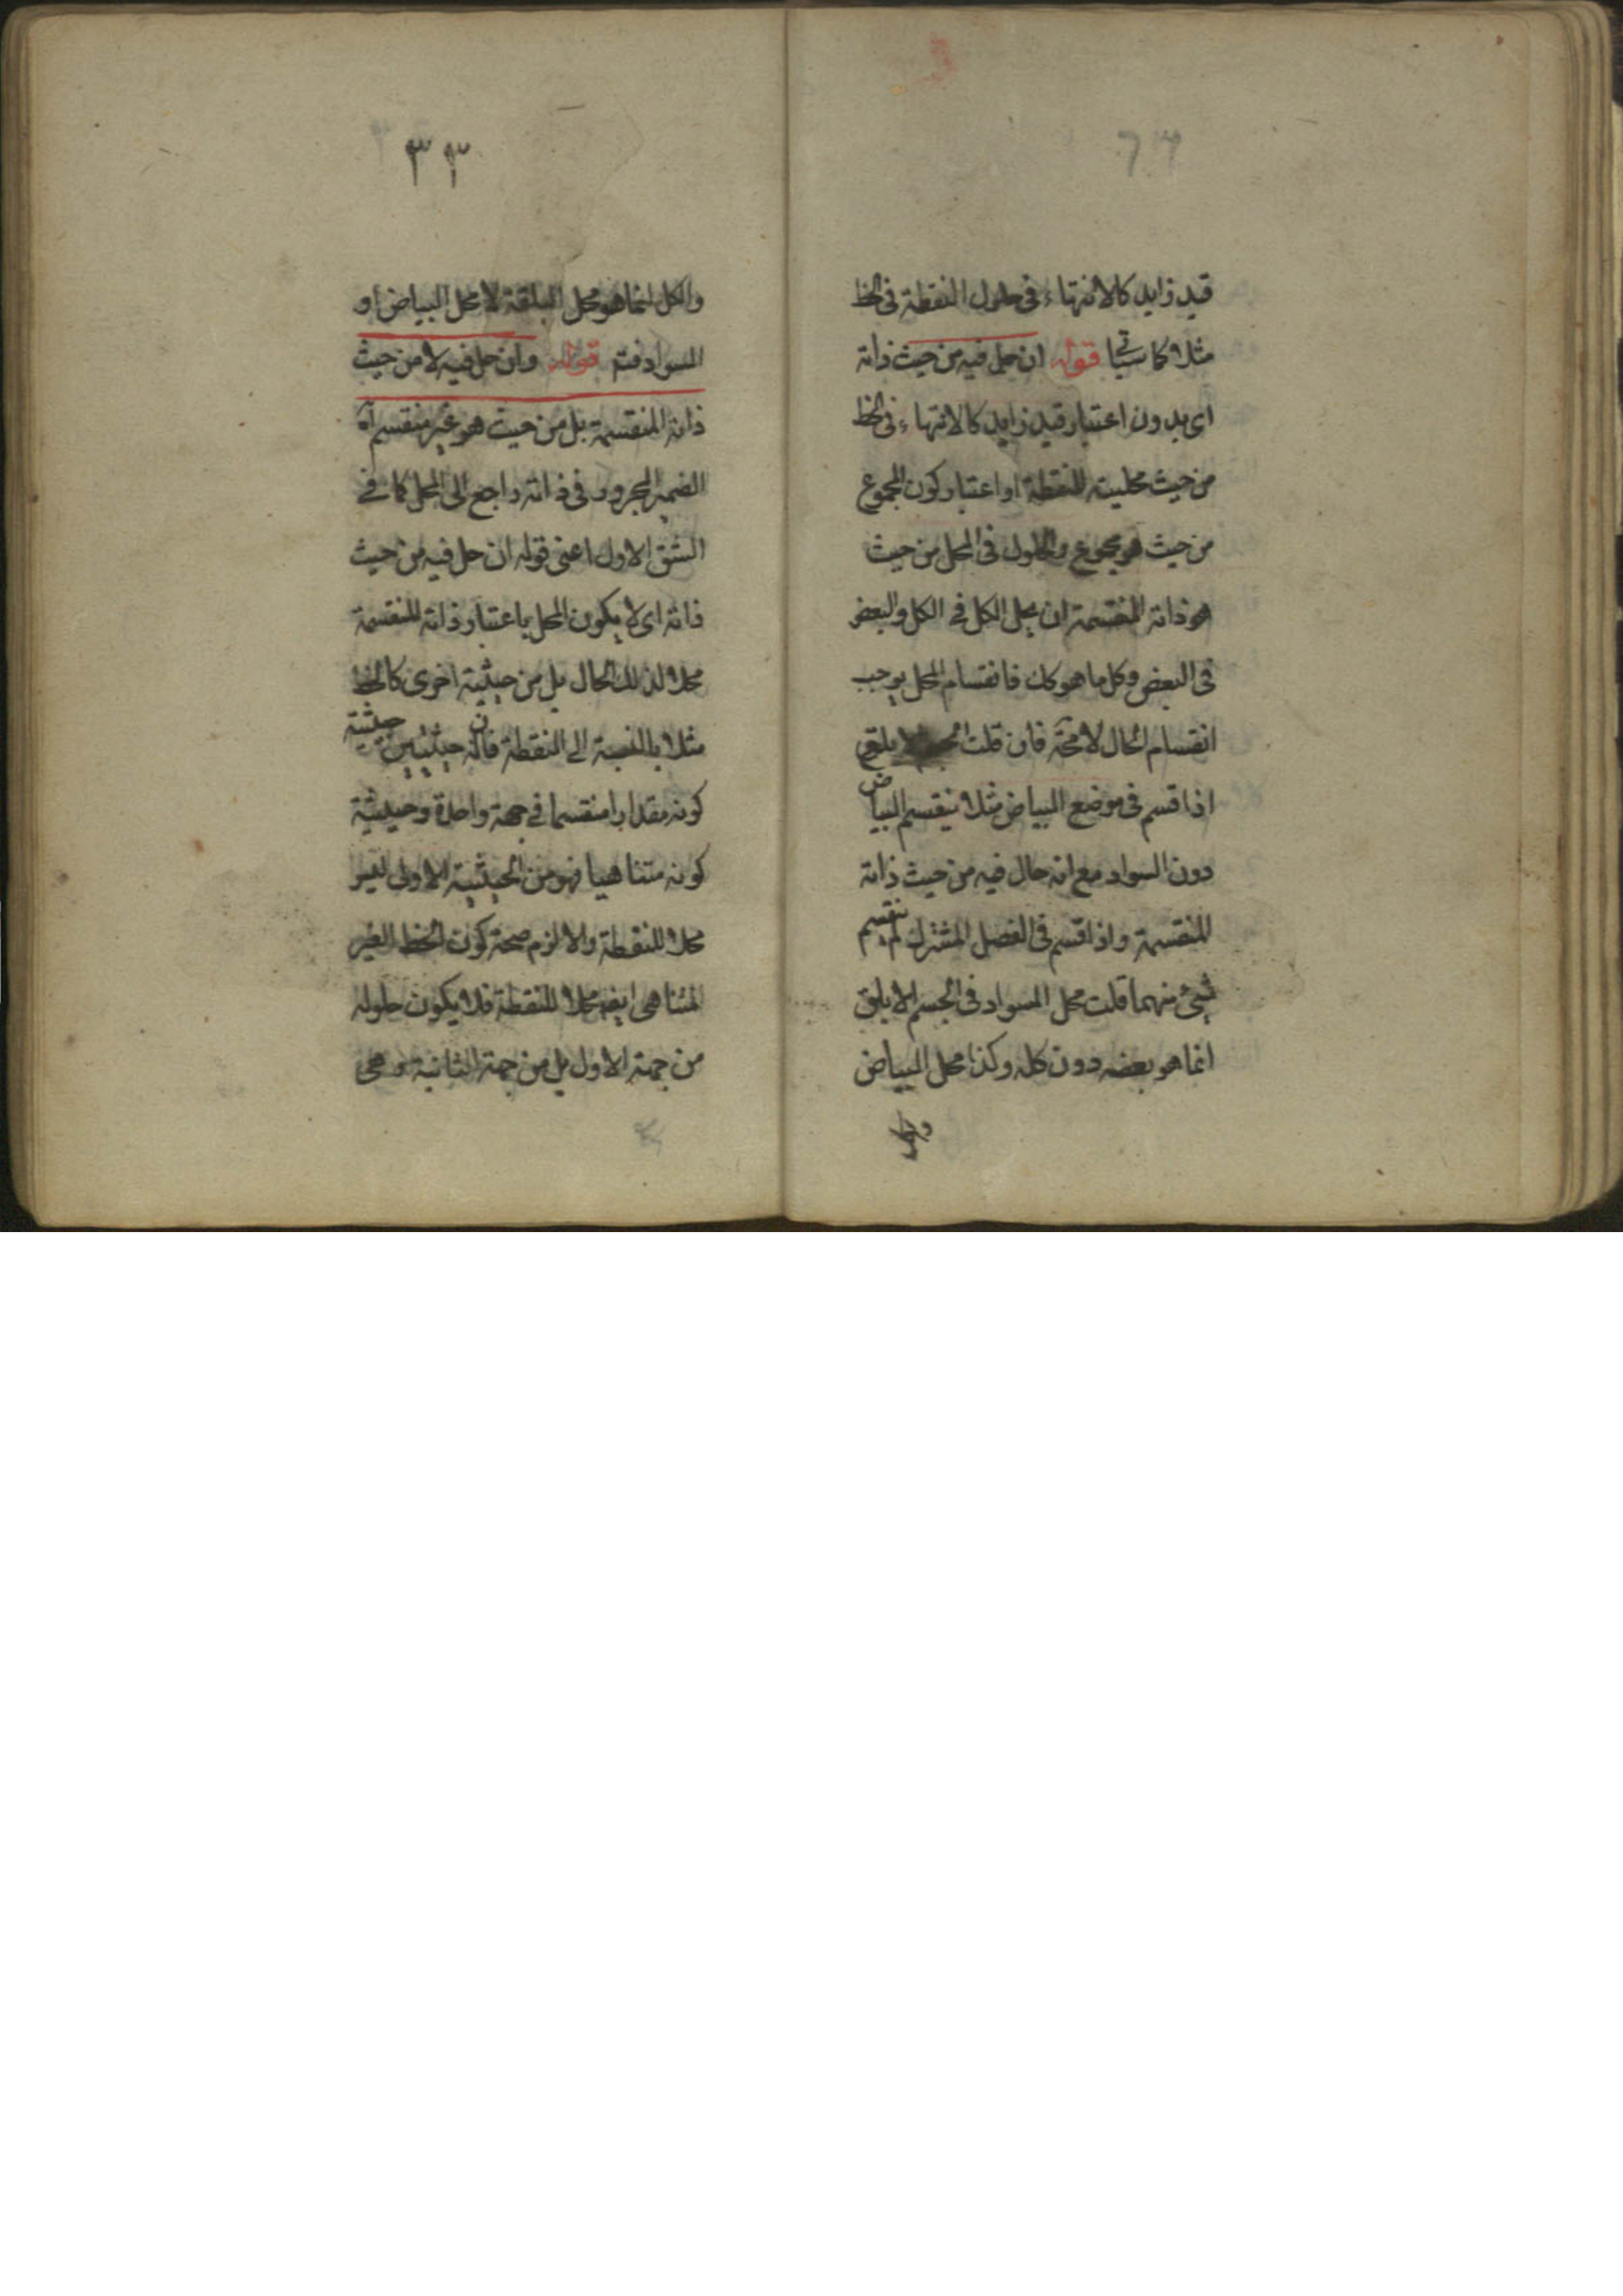 قيد زايد كالانتهاء في حلول النقطة في الخط
مثلا كما سيأتي قوله ان حل فيه من حيث ذاته
اي بدون اعتبار قيد زايد كالانتهاء في الخط
من حيث محليته للنقطة او اعتبار كون المجموع
من حيث هو مجموع والحلول في المحل من حيث
هو ذاته المنقسمة ان يحل الكل في الكل والبعض
في البعض وكل ما هو كك فانقسام المحل يوجب
انقسام الحال لا محة فان قلت
اذا قسم في موضع البياض مثلا ينقسم البياض
دون السواد مع انه حال فيه من حيث ذاته
المنقسمة واذا قسم في الفصل المشترك لم ينقسم
شيئ منهما قلت محل السواد في الجسم الابلق
انما هو بعضه دون كله وكذا محل البياض
٣٣
والكل انما هو محل البلقة لا محل البياض او
السواد فتم قوله وان حل فيه لا من حيث
ذاته المنقسمة بل من حيث هو غير منقسم آه
الضمير المجرور في ذاته راجع الى المحل كما في
الشق الاول اعني قوله ان حل فيه من حيث
ذاته اي لا يكون المحل باعتبار ذاته المنقسمة
محلا لذلك الحال بل من حيثية اخرى كالخط
مثلا بالنسبة الى النقطة فان له حيثيتين حيثية
كونه مقدارا منقسما في جهة واحدة وحيثية
كونه متناهيا فهو من الحيثية الاولى ليس
محلا للنقطة والا لزم صحة كون الخط الغير
المتناهي ايضا محلا للنقطة فلا يكون حلوله
من جهة الاول بل من جهة الثانية وهي